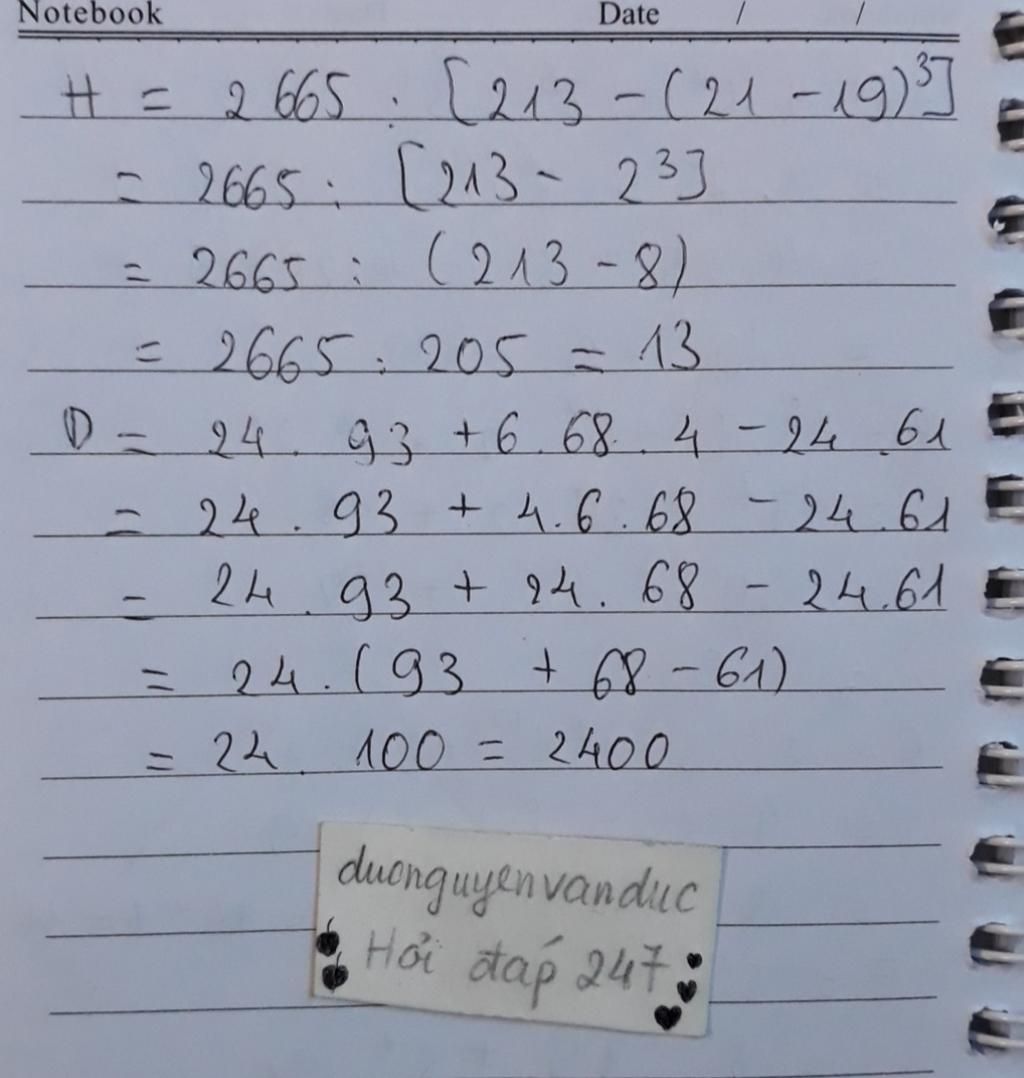 Notebook Date / /
H = 2665 : [213 - (21 - 19)³]
= 2665 : [213 - 2³]
= 2665 : (213 - 8)
= 2665 : 205 = 13
D = 24 . 93 + 6 . 68 . 4 - 24 . 61
= 24 . 93 + 4 . 6 . 68 - 24 . 61
= 24 . 93 + 24 . 68 - 24 . 61
= 24 . (93 + 68 - 61)
= 24 . 100 = 2400
duonguyenvanduc
Hỏi đáp 247